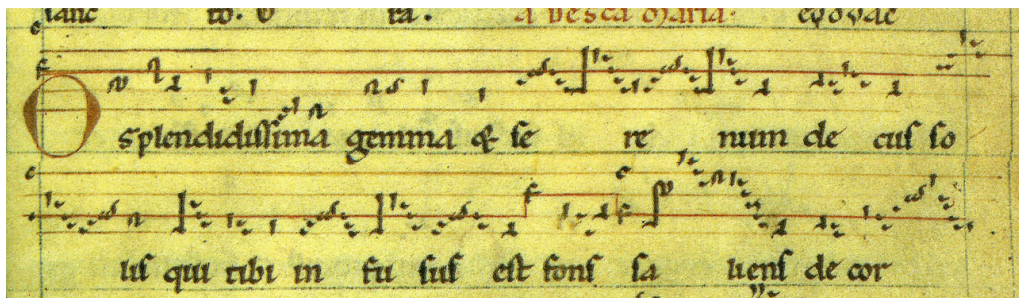 sanc to. v ra. a de sca maria. evovae
O splendidissima gemma & se re num de cus so
lis qui tibi in fu sus est fons sa liens de cor